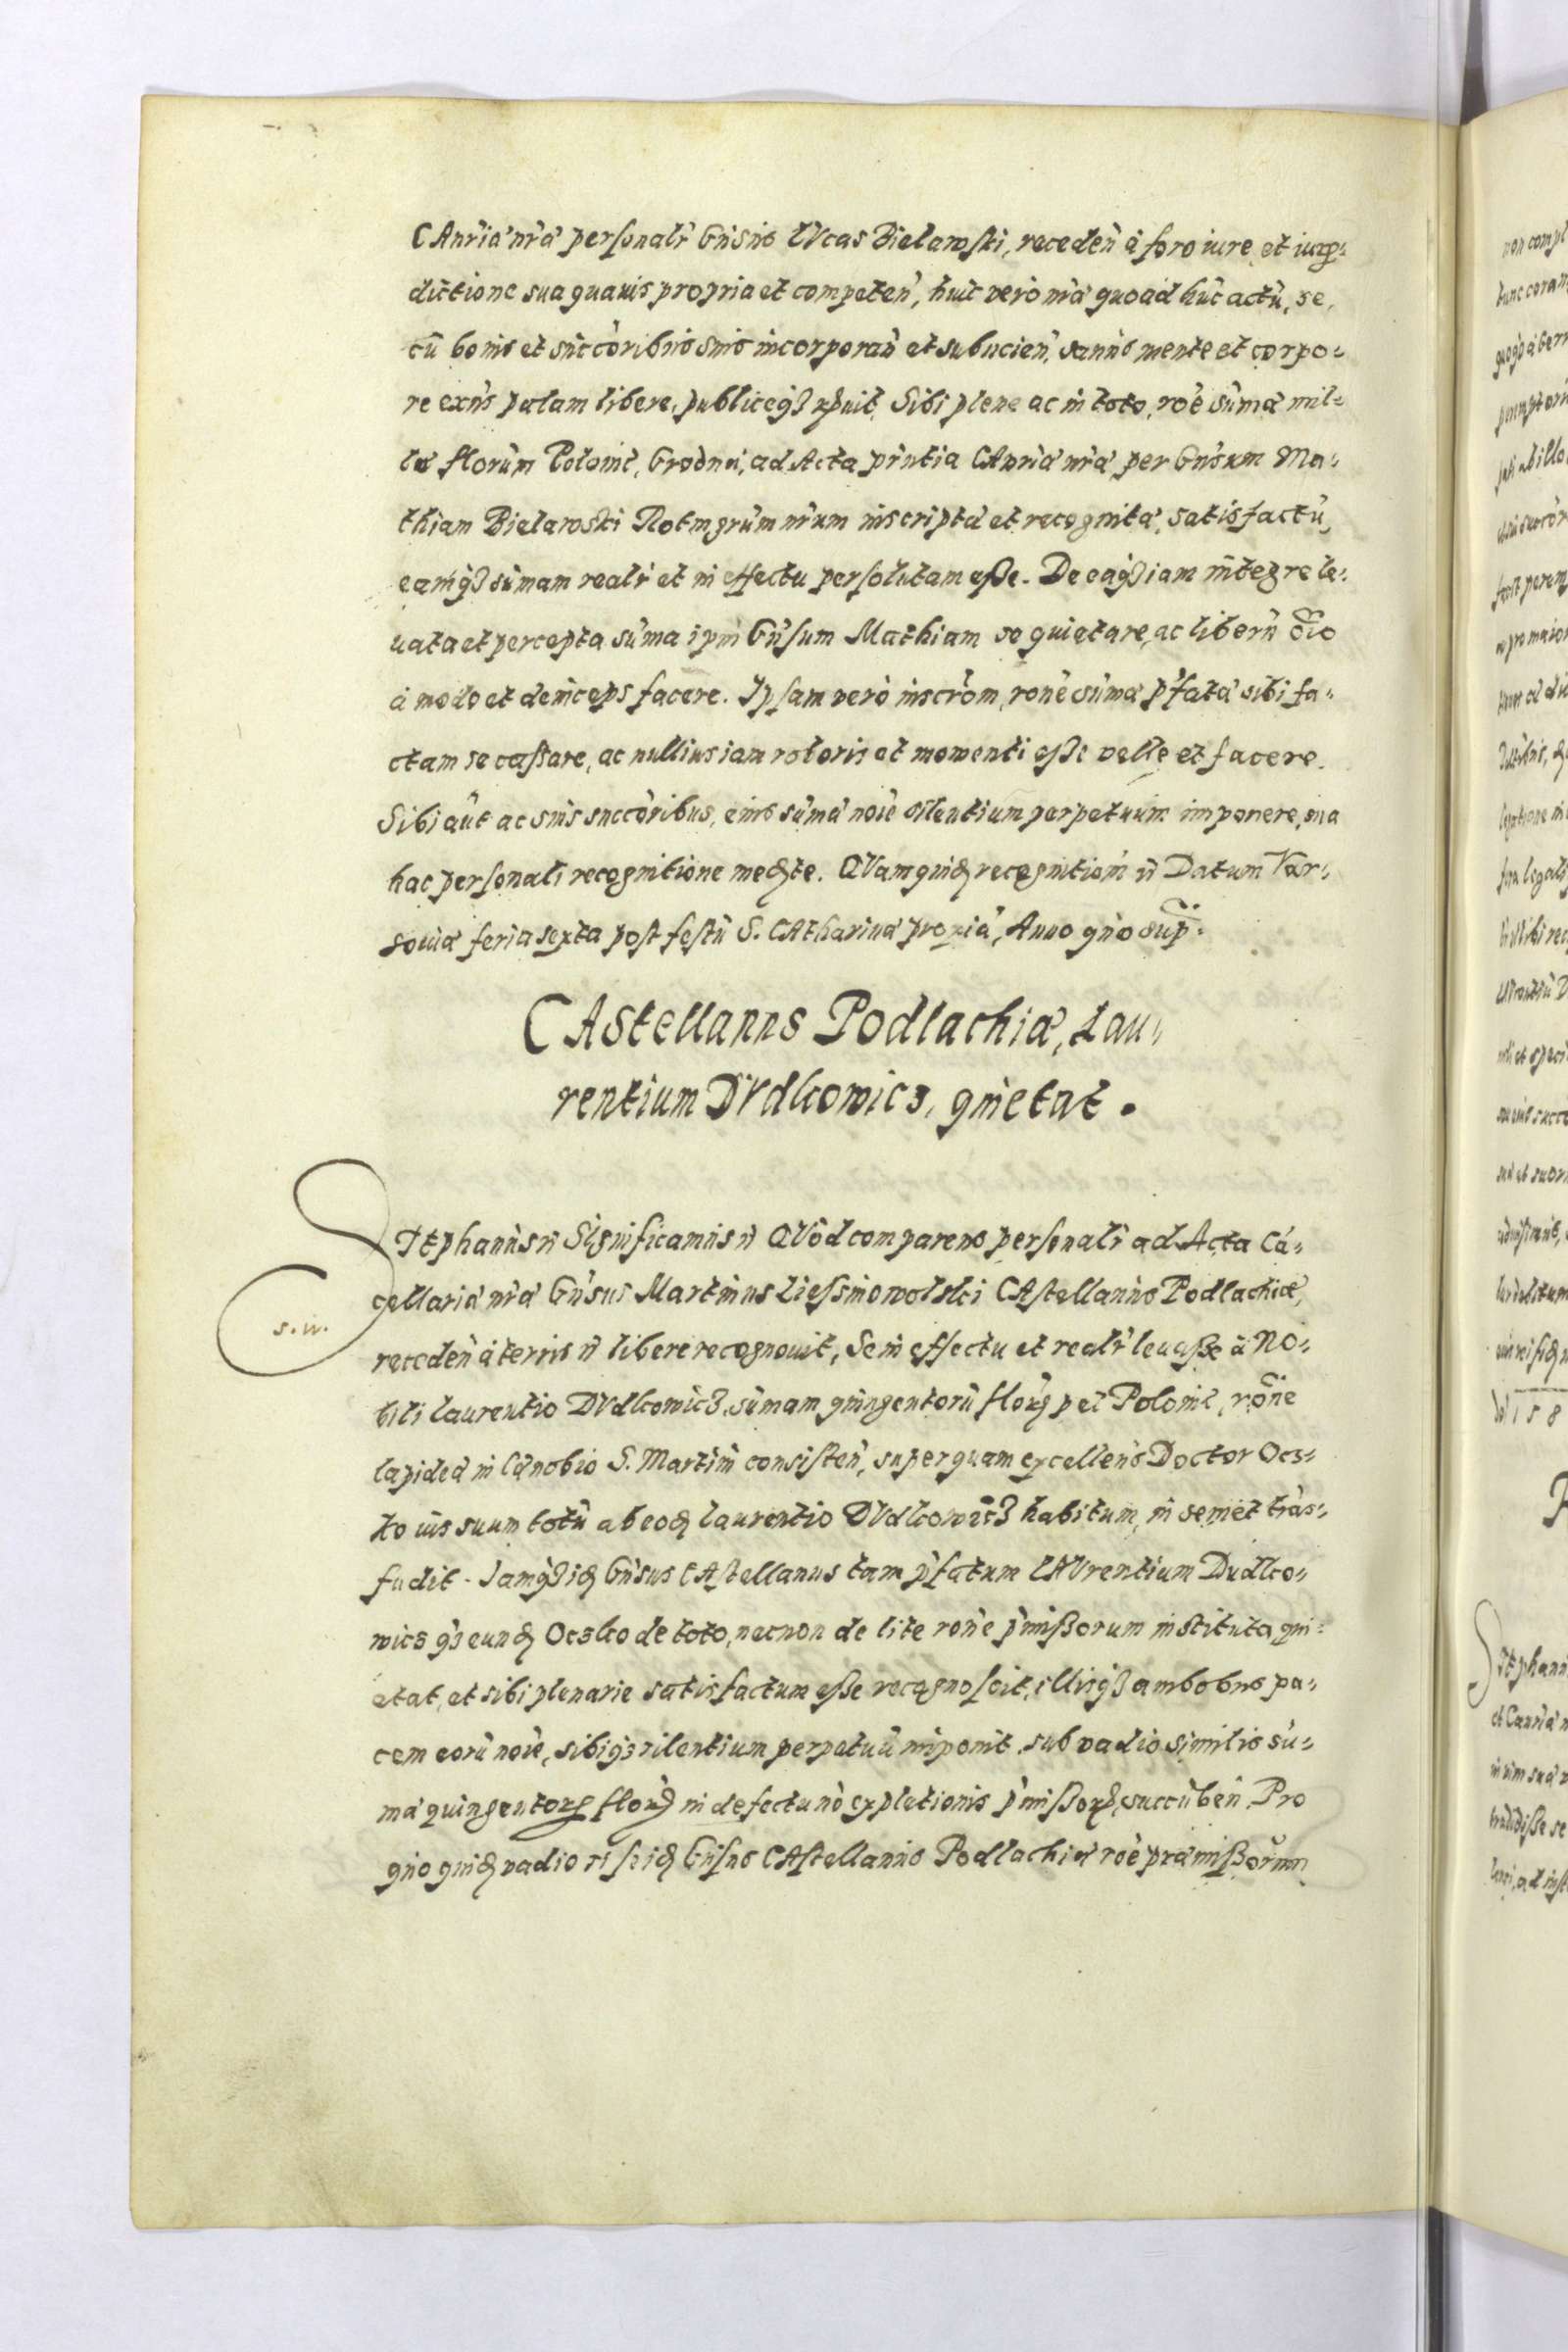 CAnria' nr̃a' personalr̃ Gn̄sus LVcas Bielawski, receden̄ à foro iure et iurẏs-
dictione sua quauis propria et competen̄, huic verò nr̃a' quoad hūc actū, se,
cū bonis et succòribus suis incorporan̄ et subijcien̄, sanus mente et corpo-
re exn̄s palam libere, publiceq3 rẏnuit, Sibi plene ac in toto, rōe sūma' mil-
le florūm Polonic̄, Grodna', ad Acta prn̄tia CAnria' nr̃a' per Gn̄sum Ma-
thiam Bielawski Rotmgrūm nr̃um inscripta' et recognita', satisfactū,
eamq3 sūmam realr̃ et in effectu persolutam esse. De eaq3 iam integre le-
uata et percepta sūma ipm̄ Gn̄sum Mathiam se quietare, ac liberū oīo
à modo et deinceps facere. Ipsam verò inscrōm, ronē sūma' p̄fata' sibi fa-
ctam se cassare, ac nullius iam roboris et momenti esse velle et facere.
Sibi aūt ac suis succòribus, eius sūma' noīe silentium perpetuum imponere, sua
hac personali recognitione med̨te. QVam quid̨ recognitiom̄ n̄ Datum Var-
sovia' feria sexta post festū S. CAtharina' proxia', Anno quo sup̄.
CAstellanus Podlachiæ, Lau-
rentium DVdkowicz, quietat.
STephanus n̄ Significamus n̄ QVòd comparens personalr̃ ad Acta Cā-
s. w.
cellaria' nr̃a' Gn̄sus Martinus Liessniowolski CAstellanus Podlachiæ,
receden̄ à terris n̄ libere recognouit, Se in effectu et realr̃ leuasse à No-
bili Laurentio DVdkowicz, sūmam quingentorū flor̨ pec̄ Polonic̄, rōne
lapidea' in Cænobio S. Martini consisten̄, super quam excellens Doctor Ocz-
ko ius suum totū ab eod̨ Laurentio DVdkowicz habitum, in semet trās-
fudit. Iamq3 id̨ Gn̄sus CAstellanus tam p̄fatum LAVrentium Dudko-
wicz q̄3 eund̨ Oczko de toto, necnon de lite ronē p̄missorum instituta, qui-
etat, et sibi plenarie satisfactum esse recognoscit, illisq3 ambobus pa-
cem eorū noīe, sibiq3 silentium perpetuū imponit, sub vadio similis sū-
ma' quingentor̨ flor̨ in defectu nō expletionis p̄missor̨, succūben̄. Pro
quo quid̨ vadio si se id̨ Gn̄sus CAstellanus Podlachia' rōe præmissorum